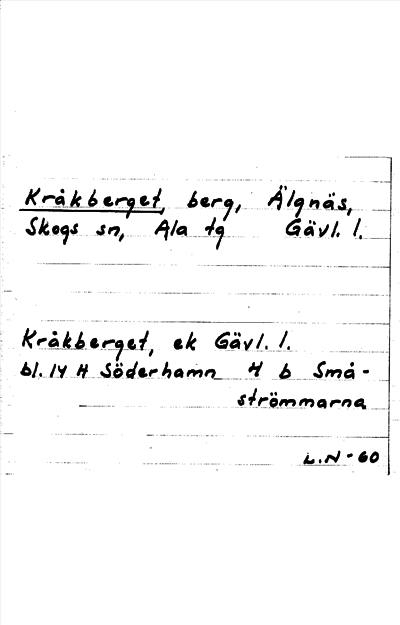 Kråkberget, berg, Älgnäs,
Skogs sn, Ala tg Gävl. l.
Kråkberget, ek Gävl. l.
bl. 14 H Söderhamn 4 b Små-
strömmarna
L.N-60